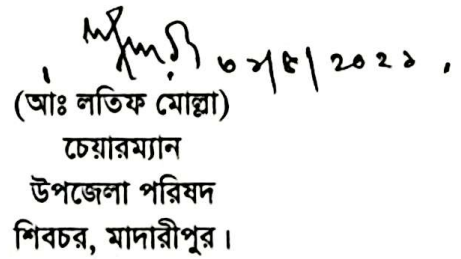 ৩১/৫/২০২১
(আঃ লতিফ মোল্লা)
চেয়ারম্যান
উপজেলা পরিষদ
শিবচর, মাদারীপুর।